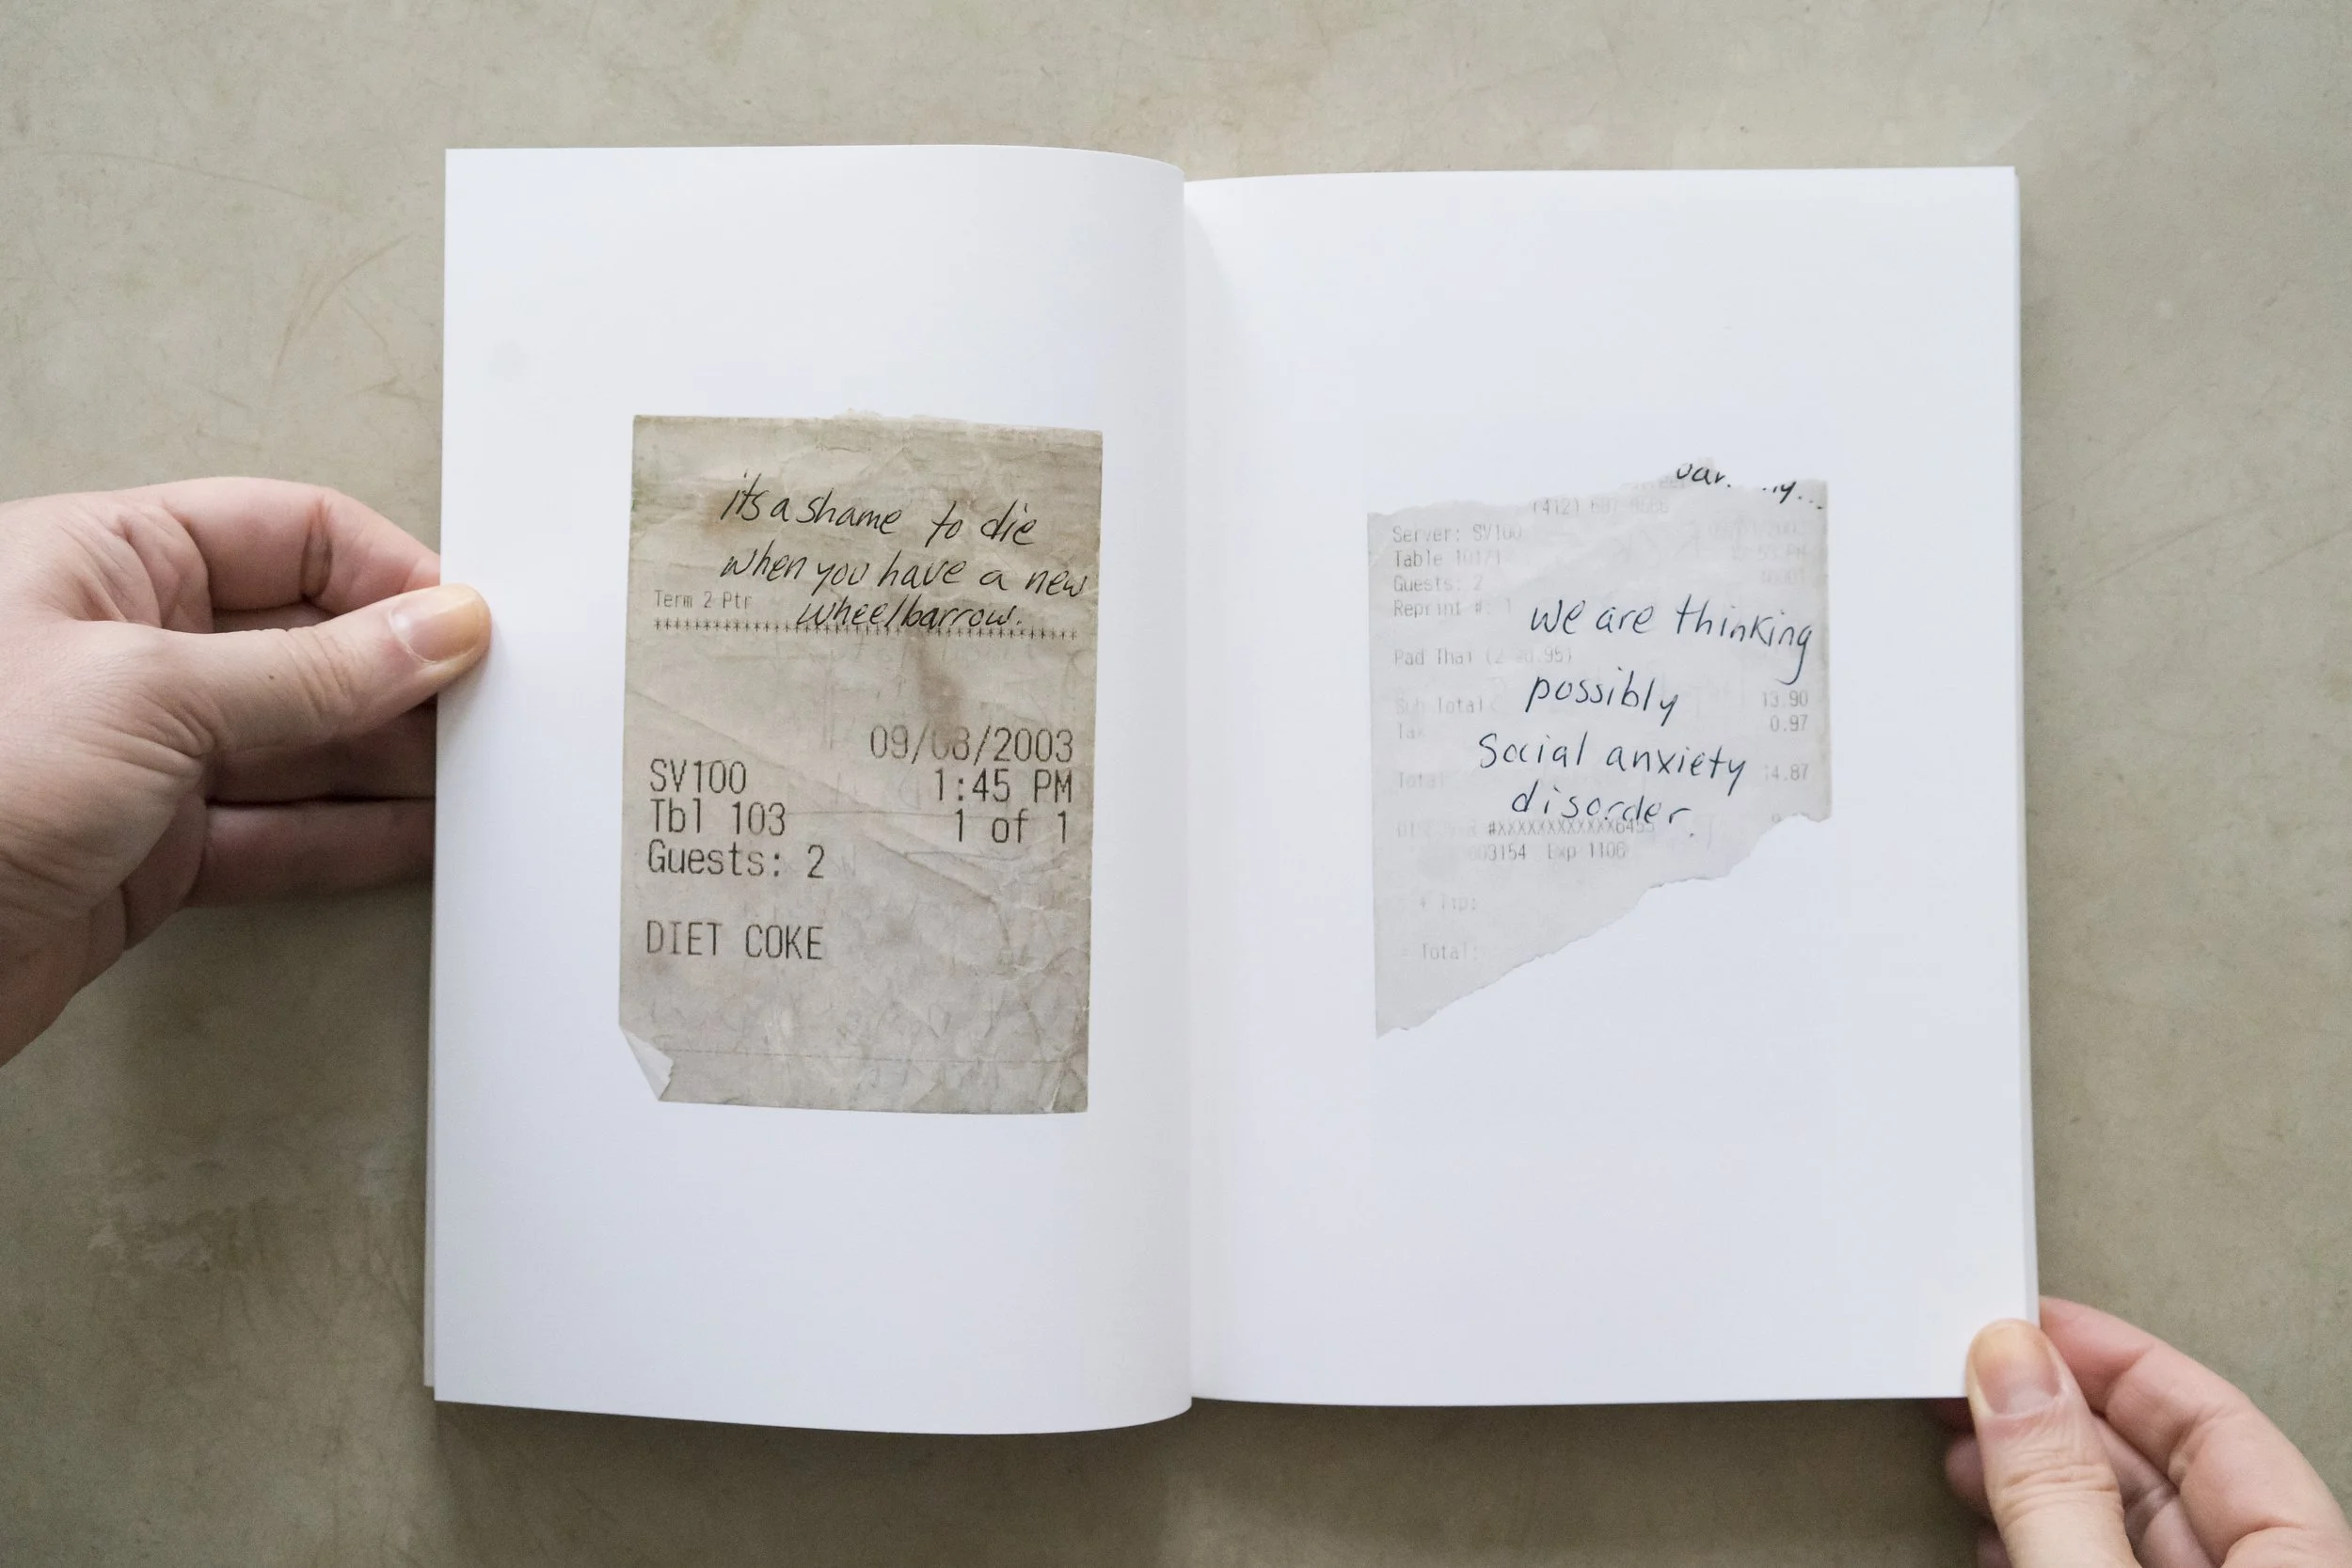 its a shame to die
when you have a new
Term 2 Ptr
wheelbarrow.
****************************************
09/08/2003
SV100 1:45 PM
Tbl 103 1 of 1
Guests: 2
DIET COKE
(412)
Server: SV100
Table 101/1
Guests: 2
Reprint #: 1
we are thinking
Pad Thai (2 @6.95)
possibly
Sub Total: 13.90
Tax 0.97
Social anxiety
Total 14.87
disorder.
#XXXXXXXXXXXX6455
Exp 1106
+ Tip:
= Total: